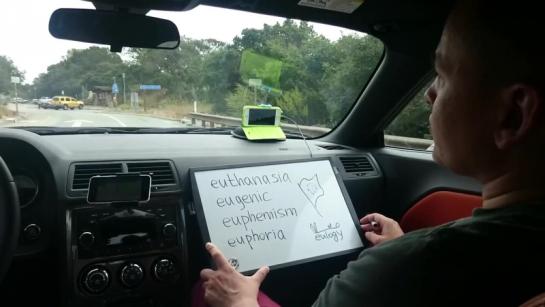 euthanasia
eugenic
euphemism
euphoria
eulogy